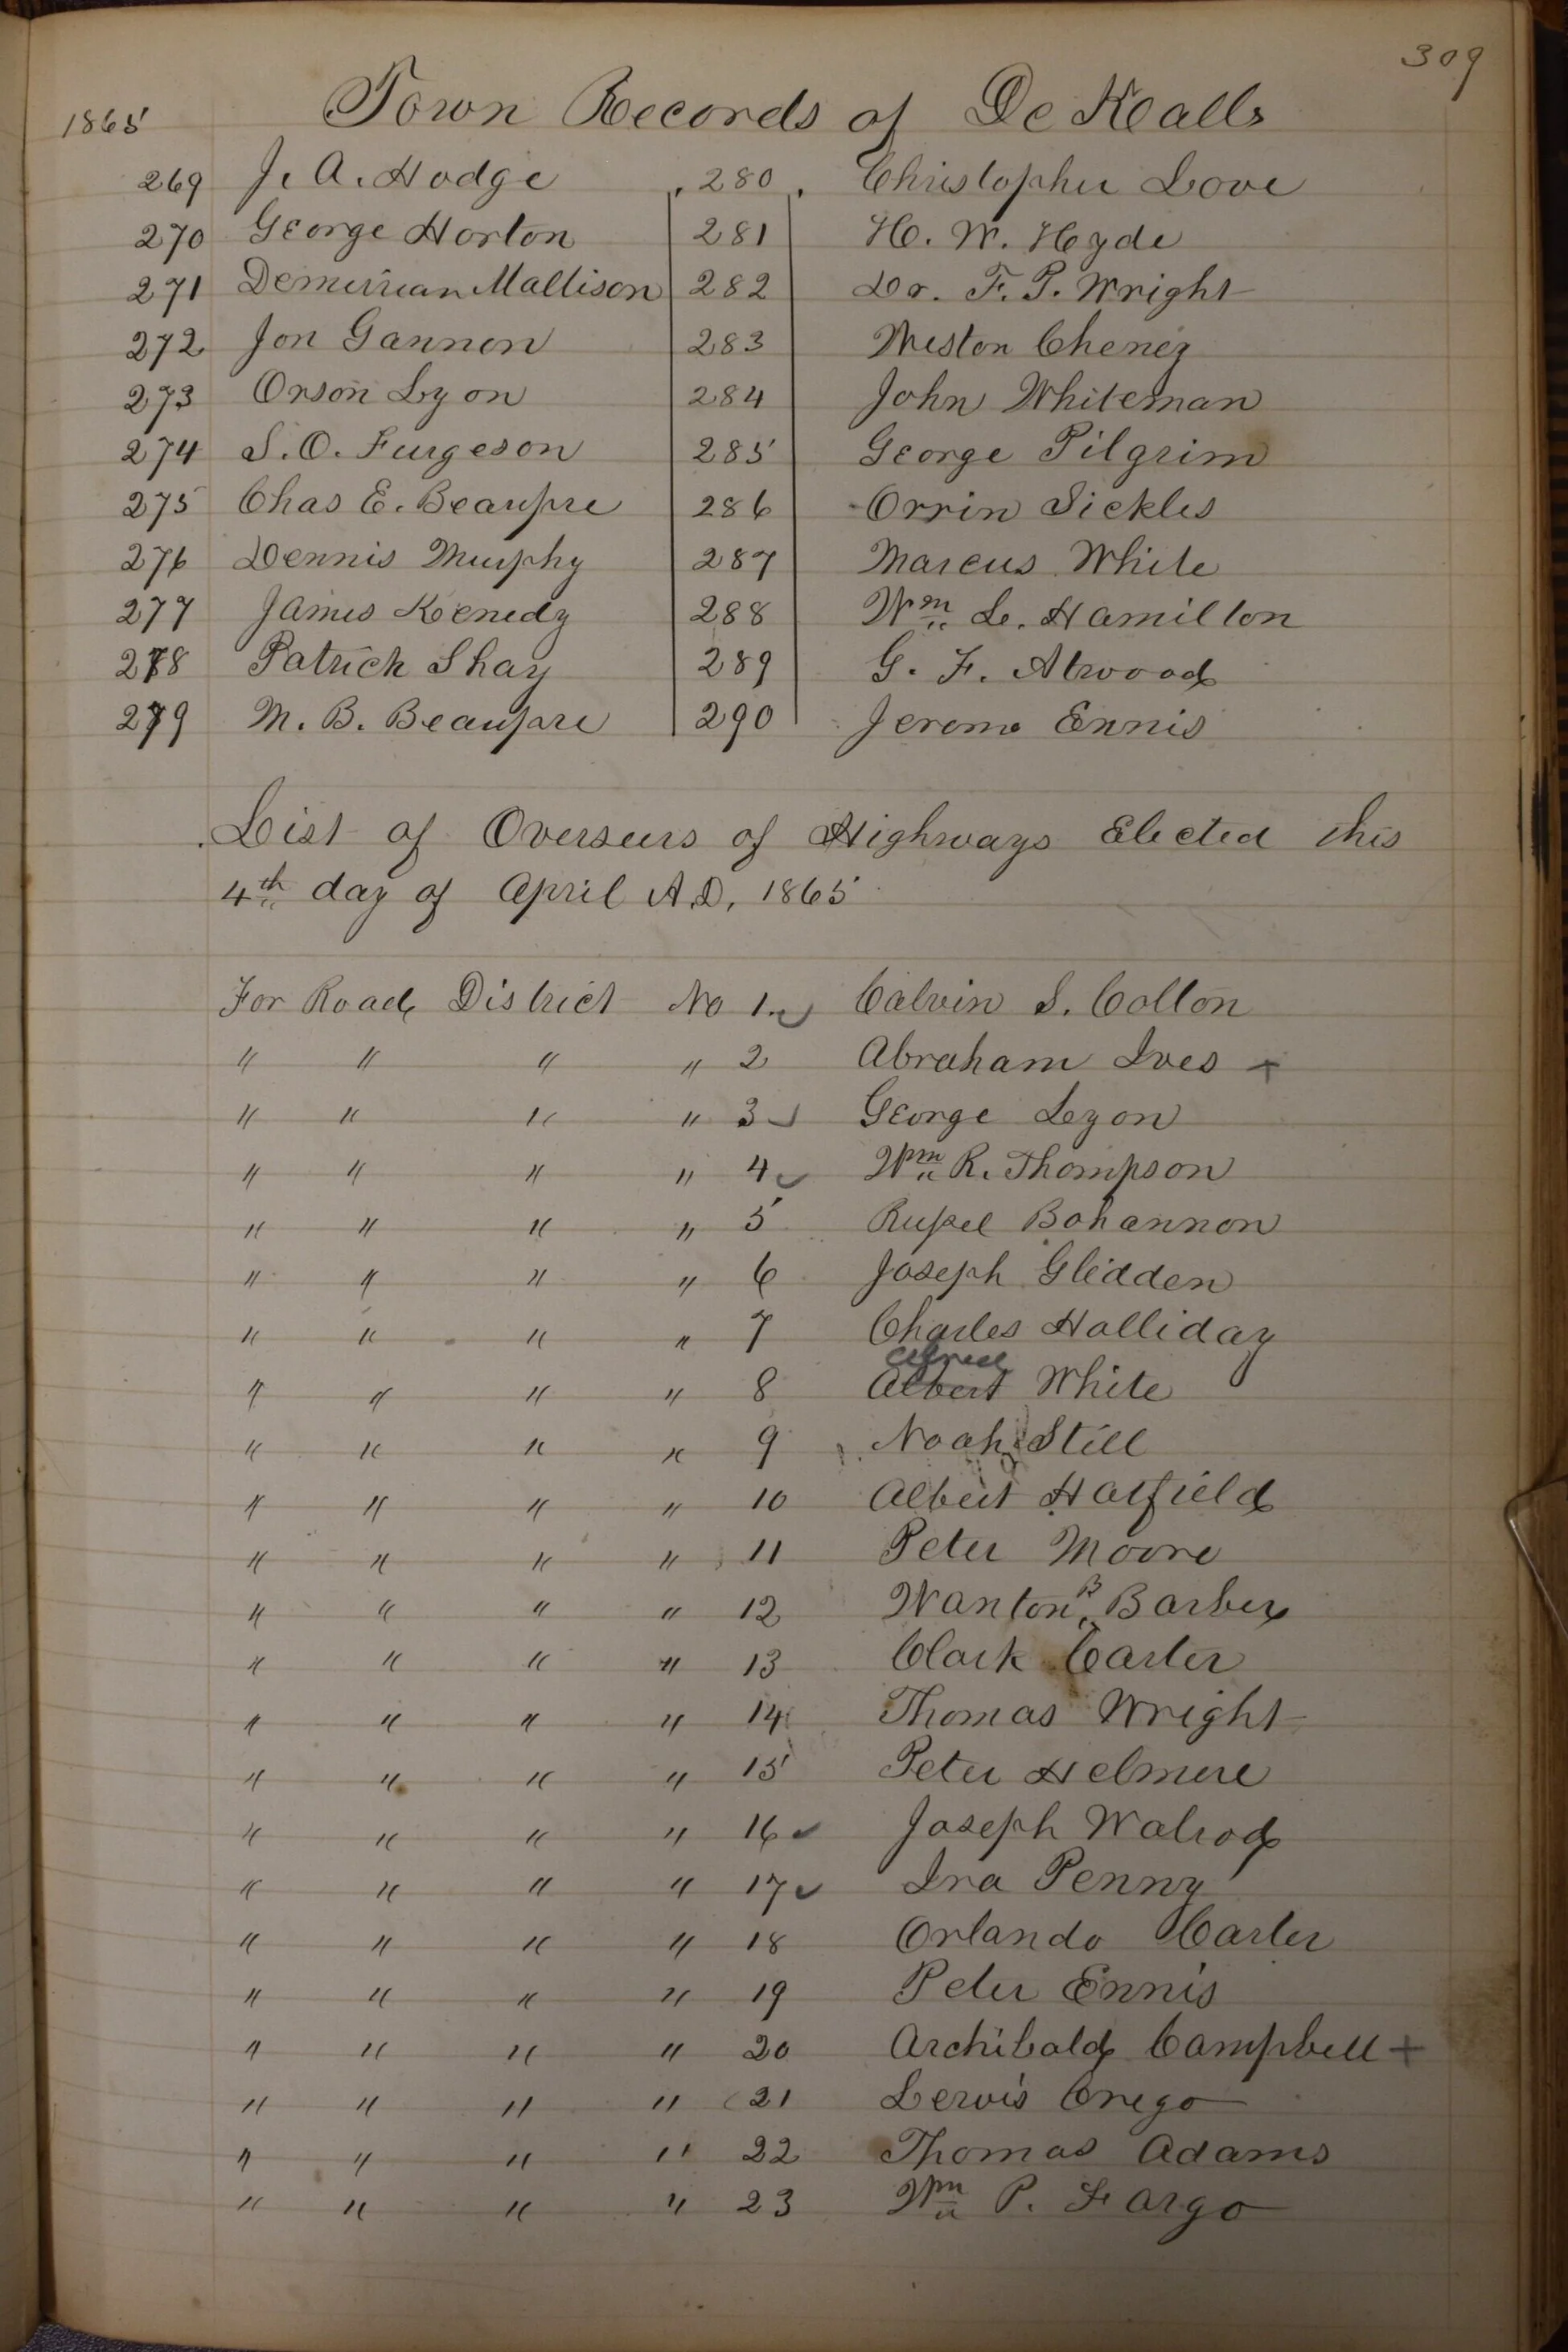 309
1865 Town Records of De Kalb
269 J. A. Hodge 280 Christopher Love
270 George Horton 281 H. W. Hyde
271 Demerrian Mallison 282 Dr. F. P. Wright
272 Jon Gannon 283 Weston Cheney
273 Orson Lyon 284 John Whiteman
274 S. O. Furgeson 285 George Pilgrim
275 Chas E. Beaupre 286 Orrin Sickles
276 Dennis Murphy 287 Marcus White
277 James Kenedy 288 Wm L. Hamilton
278 Patrick Shay 289 G. F. Atwood
279 M. B. Beaupre 290 Jerome Ennis
List of Overseers of Highways Elected this
4th day of April A.D, 1865
For Road District No 1. Calvin S. Colton
" " " " 2 Abraham Ives +
" " " " 3 George Lyon
" " " " 4 Wm R. Thompson
" " " " 5 Russel Bohannon
" " " " 6 Joseph Glidden
" " " " 7 Charles Halliday
" " " " 8 Albert White
" " " " 9 Noah Still
" " " " 10 Albert Hatfield
" " " " 11 Peter Moore
" " " " 12 Wanton B Barber
" " " " 13 Clark Carter
" " " " 14 Thomas Wright
" " " " 15 Peter Helmere
" " " " 16 Joseph Walrod
" " " " 17 Ira Penny
" " " " 18 Orlando Carter
" " " " 19 Peter Ennis
" " " " 20 Archibald Campbell +
" " " " 21 Lewis Crego
" " " " 22 Thomas Adams
" " " " 23 Wm P. Fargo